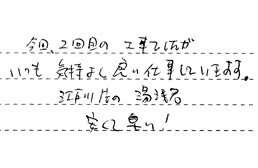 今回、2回目の工事でしたが
いつも気持よく良い仕事しています。
江戸川店の湯浅君
安くて早い!